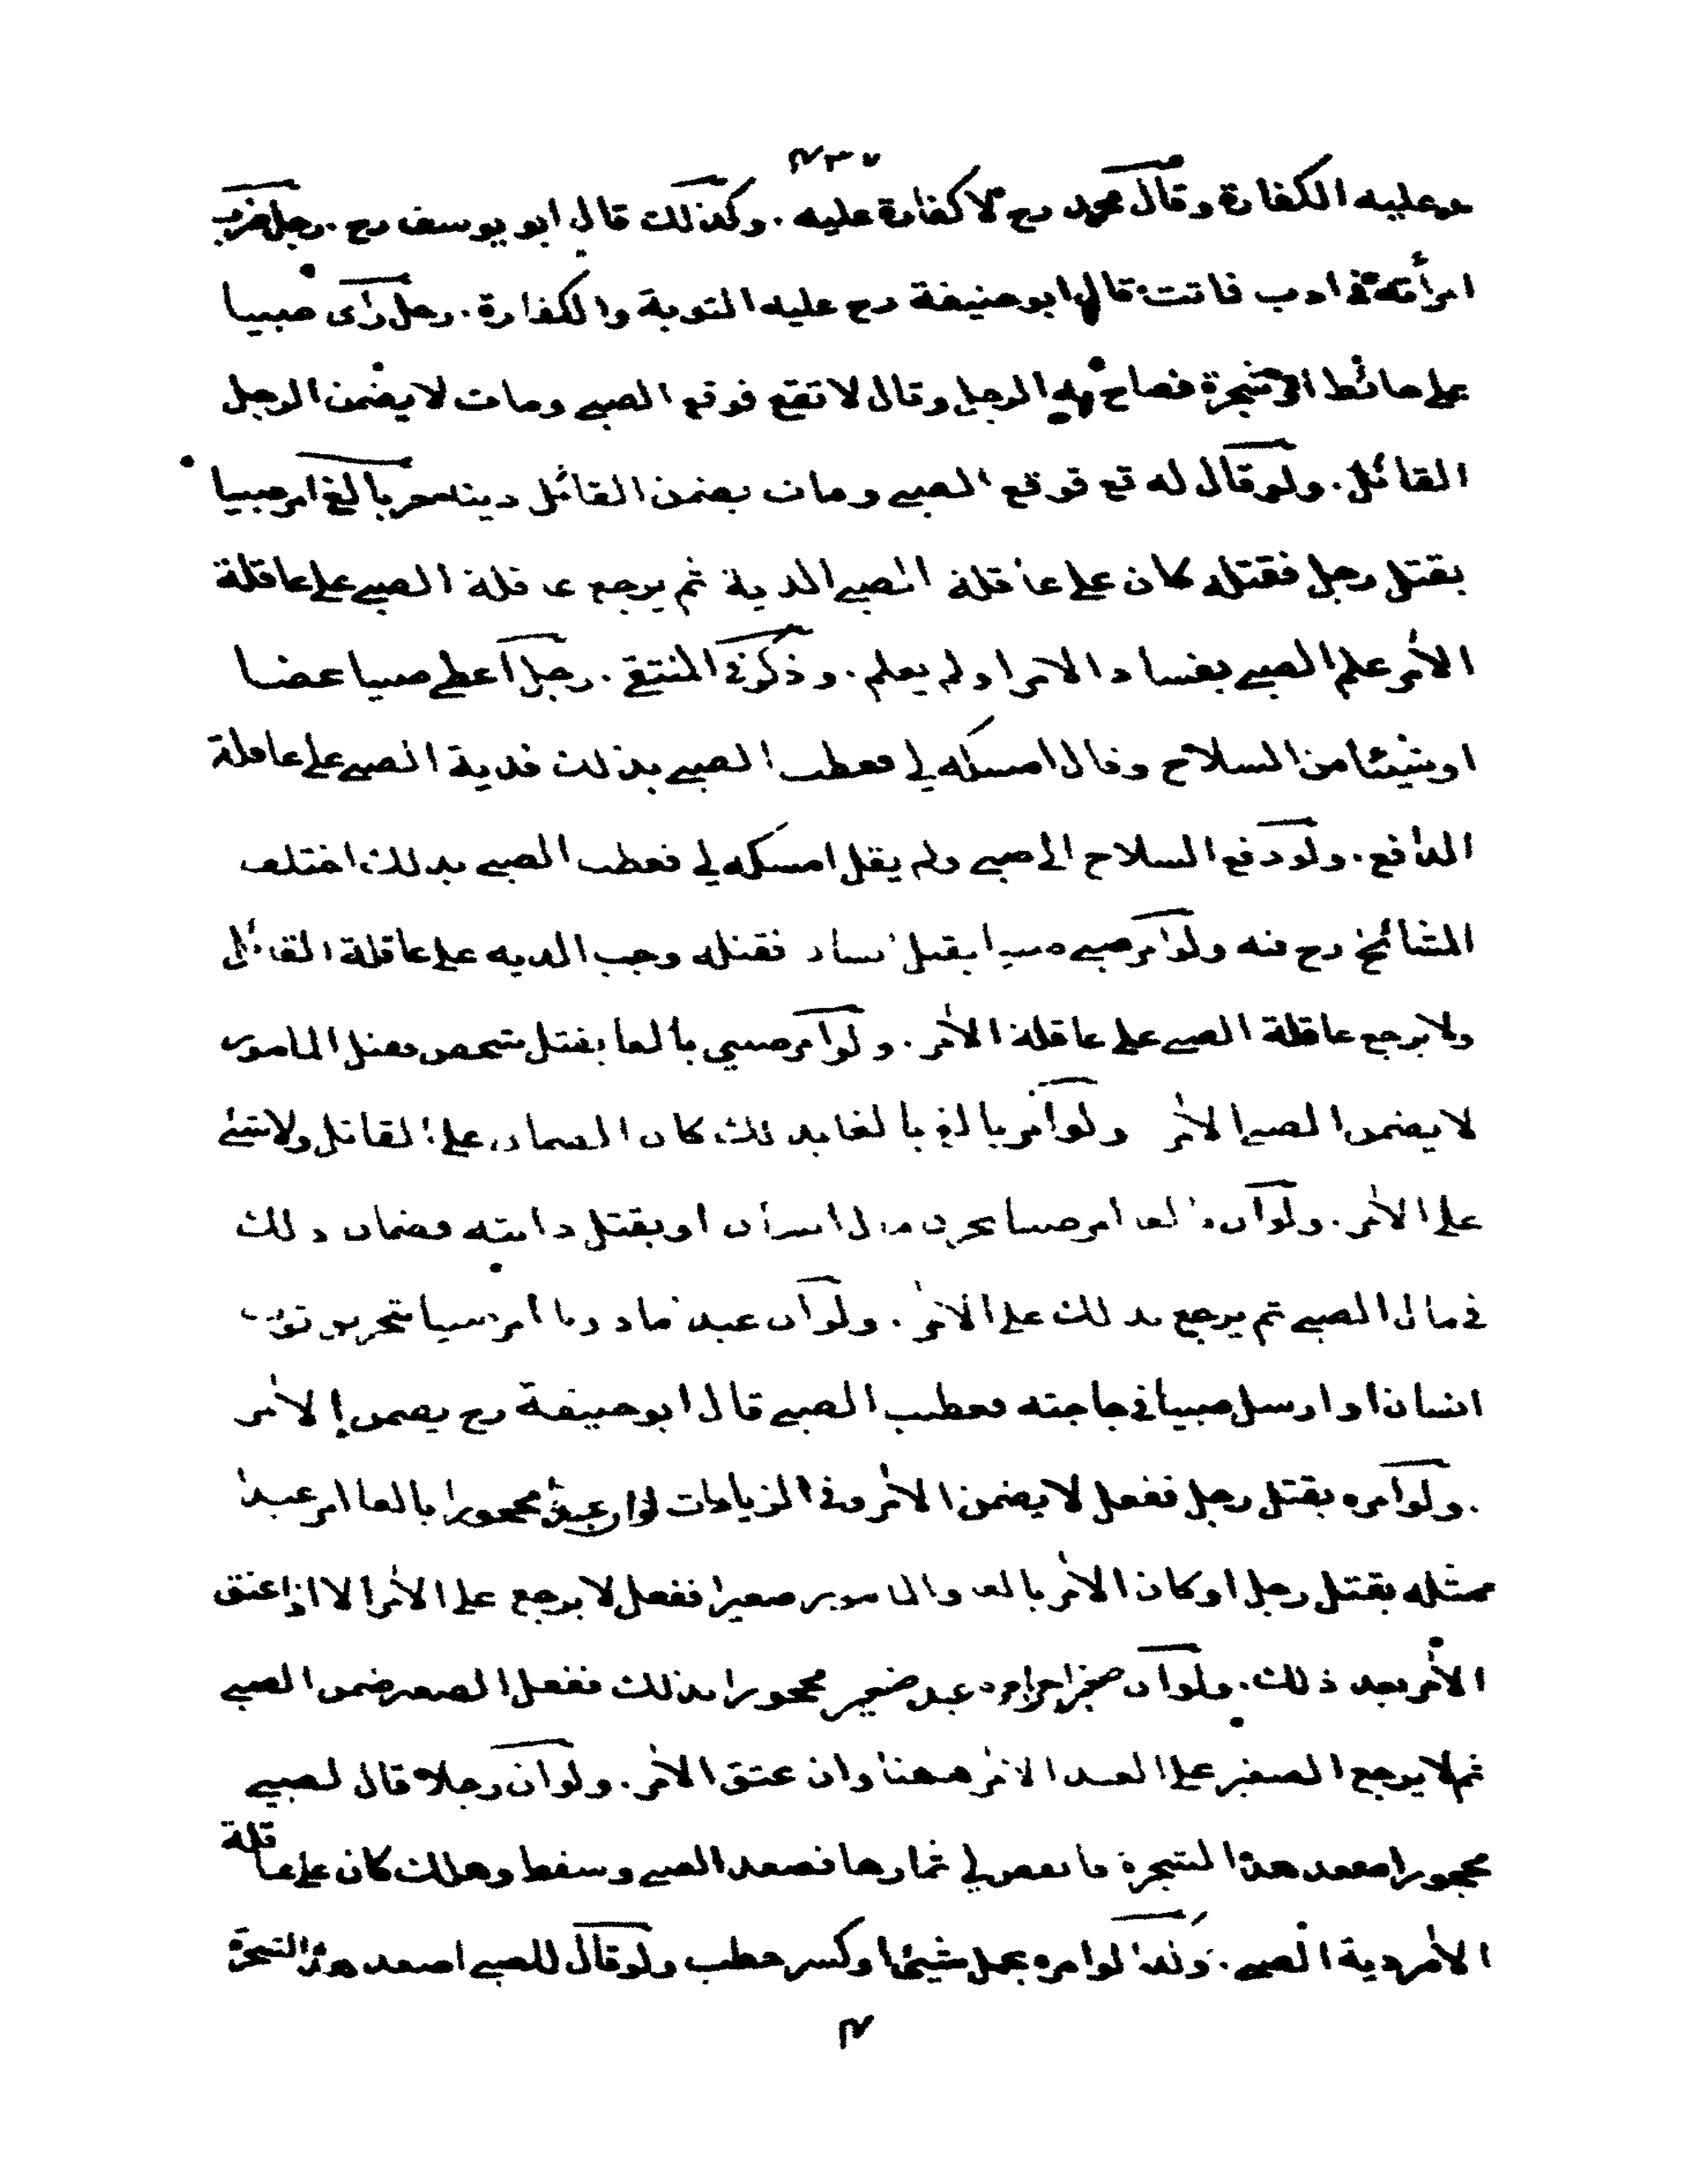 ٤٣٧
وعليه الكفارة وقال محمد رح لا كفارة عليه . وكذلك قال ابو يوسف رح . رجل ضرب
امرأته في ادب فماتت قال ابو حنيفة رح عليه التوبة والكفارة . رجل رأى صبيا
على حائط او شجرة فصاح به الرجل وقال لا تقع فوقع الصبي ومات لا يضمن الرجل
القائل . ولو قال له قع فوقع الصبي ومات يضمن القائل ديته حر بالغ امر صبيا
بقتل رجل فقتله كان على عاقلة الصبي الدية ثم يرجع عاقلة الصبي على عاقلة
الآمر علم الصبي بفساد الامر او لم يعلم . وذكر في المنتقى . رجل اعطى صبيا عصا
او شيئا من السلاح وقال امسكه لي فعطب الصبي بذلك فدية الصبي على عاقلة
الدافع . ولو دفع السلاح الى صبي ولم يقل امسكه لي فعطب الصبي بذلك اختلف
المشائخ رح فيه ولو امر صبي صبيا بقتل انسان فقتله وجب الديه على عاقلة القاتل
ولا يرجع عاقلة الصبي على عاقلة الآمر . ولو امر صبي بالغا بقتل شخص فقتل المامور
لا يضمن الصبي الآمر ولو امر بالغ بالغا بذلك كان الضمان على القاتل ولا شئ
على الآمر . ولو ان بالغا امر صبيا بحرق مال انسان او بقتل دابته فضمان ذلك
في مال الصبي ثم يرجع بذلك على الآمر . ولو ان عبدا ماذونا امر صبيا بتحريق ثوب
انسان او ارسل صبيا في حاجته فعطب الصبي قال ابو حنيفة رح يضمن الآمر
. ولو امره بقتل رجل ففعل لا يضمن الآمر وفي الزيادات لو ان عبدا محجورا بالغا امر عبدا
مثله بقتل رجل او كان الآمر بالغا والمامور صغيرا ففعل لا يرجع على الآمر الا اذا عتق
الآمر بعد ذلك . ولو ان صغيرا حرا امره عبد صغير محجورا بذلك ففعل الصغير ضمن الصبي
ثم لا يرجع الصغير على العبد الآمر ههنا وان عتق الآمر . ولو ان رجلا قال لصبي
محجور اصعد هذا الشجرة فانفض لي ثمارها فصعد الصبي وسقط وهلك كان على عاقلة
الآمر دية الصبي . وكذا لو امره بحمل شيئا او كسر حطب ولو قال للصبي اصعد هذا الشجرة